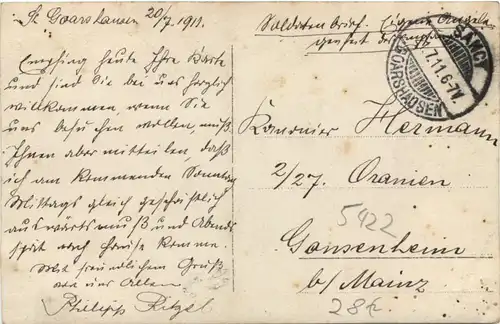 St Goarshausen 20/7.1911.
Empfing heute Ihre Karte
und sind Sie bei uns herzlich
willkommen, wenn Sie
uns besuchen wollen, muß
Ihnen aber mitteilen, daß
ich am kommenden Sonntag
Mittags gleich geschäftlich
auswärts muß und Abends
spät nach Hause komme.
Mit freundlichem Gruß
von uns Allen
Philipp Ritzel
Soldaten brief. Eigene Angele-
genheit des Empfängers
SANCT
7.11.6-7N.
GOARSHAUSEN
Kanonier Hermann
2/27. Oranien
5422
Gonsenheim
b/ Mainz
28 f.